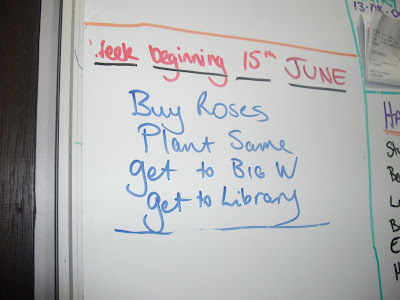 Week beginning 15th JUNE
Buy Roses
Plant Same
get to BIG W
get to Library